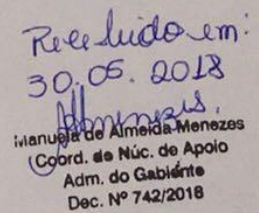 Recebido em:
30.05.2018
Manuela de Almeida Menezes
Coord. de Núc. de Apoio
Adm. do Gabiente
Dec. Nº 742/2018